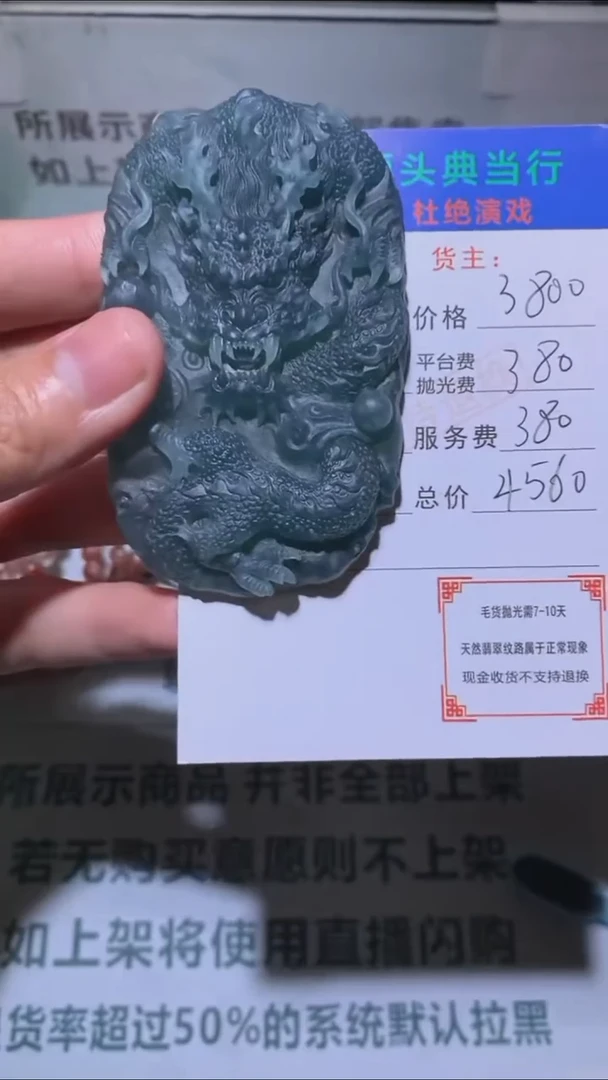 所展示
如上
头典当行
杜绝演戏
货主：
价格 3800
平台费
抛光费 380
服务费 380
总价 4560
毛货抛光需7-10天
天然翡翠纹路属于正常现象
现金收货不支持退换
所展示商品 并非全部上架
若无购买意愿则不上架
如上架将使用直播闪购
货率超过50%的系统默认拉黑